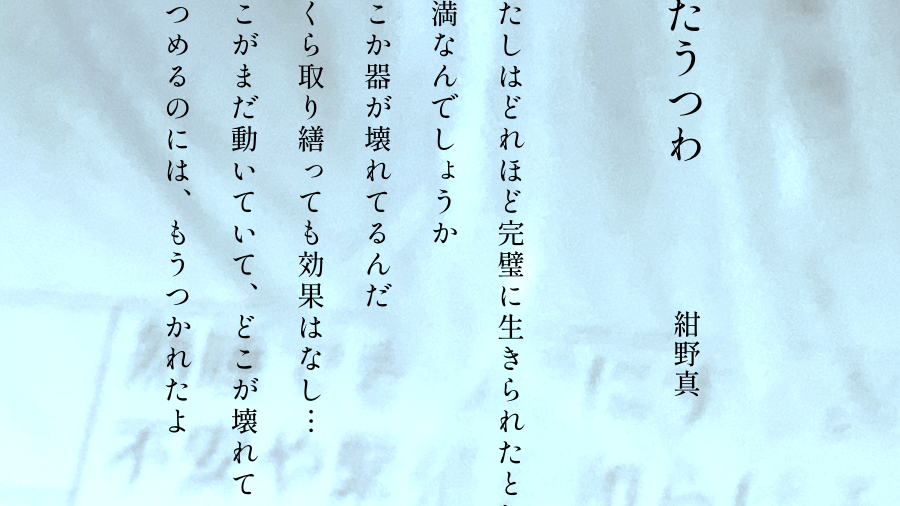 たうつわ
紺野真
たしはどれほど完璧に生きられたと
満なんでしょうか
こか器が壊れてるんだ
くら取り繕っても効果はなし…
こがまだ動いていて、どこが壊れて
つめるのには、もうつかれたよ